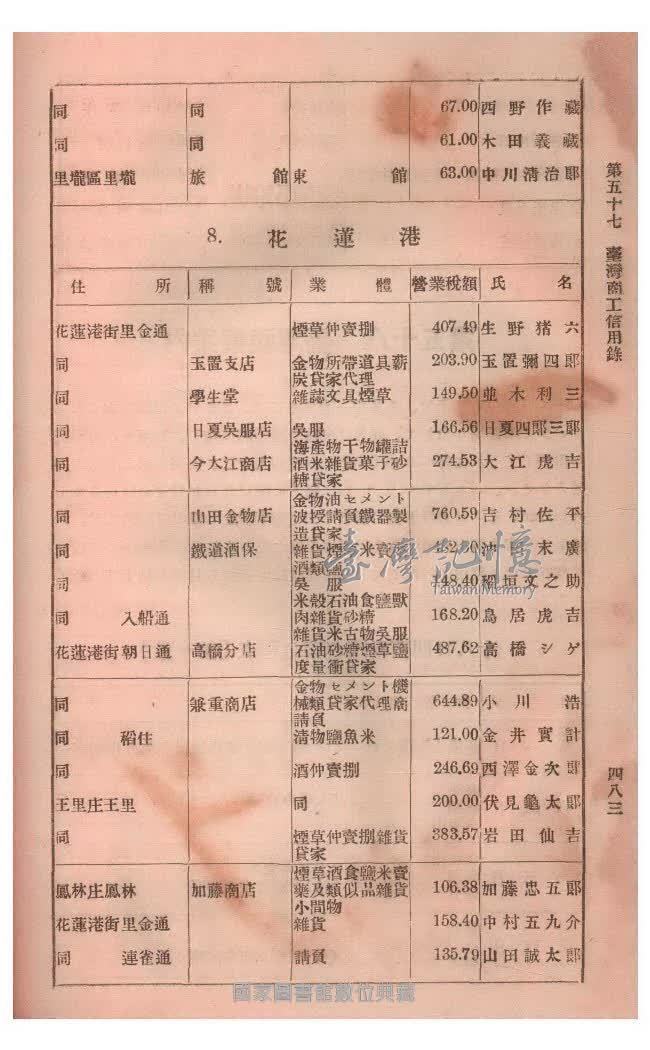 第五十七 臺灣商工信用錄
同 同 67.00 西野作藏
同 同 61.00 木田義藏
里壠區里壠 旅館 東館 63.00 中川清治郎
8. 花蓮港
住所 稱號 業體 營業稅額 氏名
花蓮港街里金通 煙草仲賣捌 407.49 生野猪六
同 玉置支店 金物所帶道具薪
炭貸家代理 203.90 玉置彌四郎
同 學生堂 雜誌文具煙草 149.50 並木利三
同 日夏吳服店 吳服 166.56 日夏四郎三郎
同 今大江商店 海產物干物罐詰
酒米雜貨菓子砂
糖貸家 274.53 大江虎吉
同 山田金物店 金物油セメント
波授請負鐵器製
造貸家 760.59 吉村佐平
同 鐵道酒保 雜貨煙 米賣
酒類鹽 池田末廣
同 吳服 148.40 稻垣文之助
同 入船通 米穀石油食鹽獸
肉雜貨砂糖 168.20 鳥居虎吉
花蓮港街朝日通 高橋分店 雜貨米古物吳服
石油砂糖煙草鹽
度量衝貸家 487.62 高橋シゲ
同 兼重商店 金物セメント機
械類貸家代理商
請負 644.89 小川浩
同 稻住 清物鹽魚米 121.00 金井實計
同 酒仲賣捌 246.69 西澤金次郎
王里庄王里 同 200.00 伏見龜太郎
同 煙草仲賣捌雜貨
貸家 383.57 岩田仙吉
鳳林庄鳳林 加藤商店 煙草酒食鹽米賣
藥及類似品雜貨
小間物 106.38 加藤忠五郎
花蓮港街里金通 雜貨 158.40 中村五九介
同 連雀通 請負 135.79 山田誠太郎
四八三
臺灣記憶
Taiwan Memory
國家圖書館數位典藏